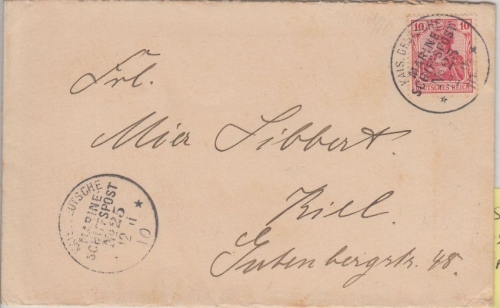 10 10
KAIS. DEUTSCHE
MARINE-
SCHIFFSPOST
No 25
DEUTSCHES REICH
Frl.
Mia Sibbert.
Kiel.
Gutenbergstr. 48.
DEUTSCHE
MARINE-
SCHIFFSPOST
No 25
12 11
10